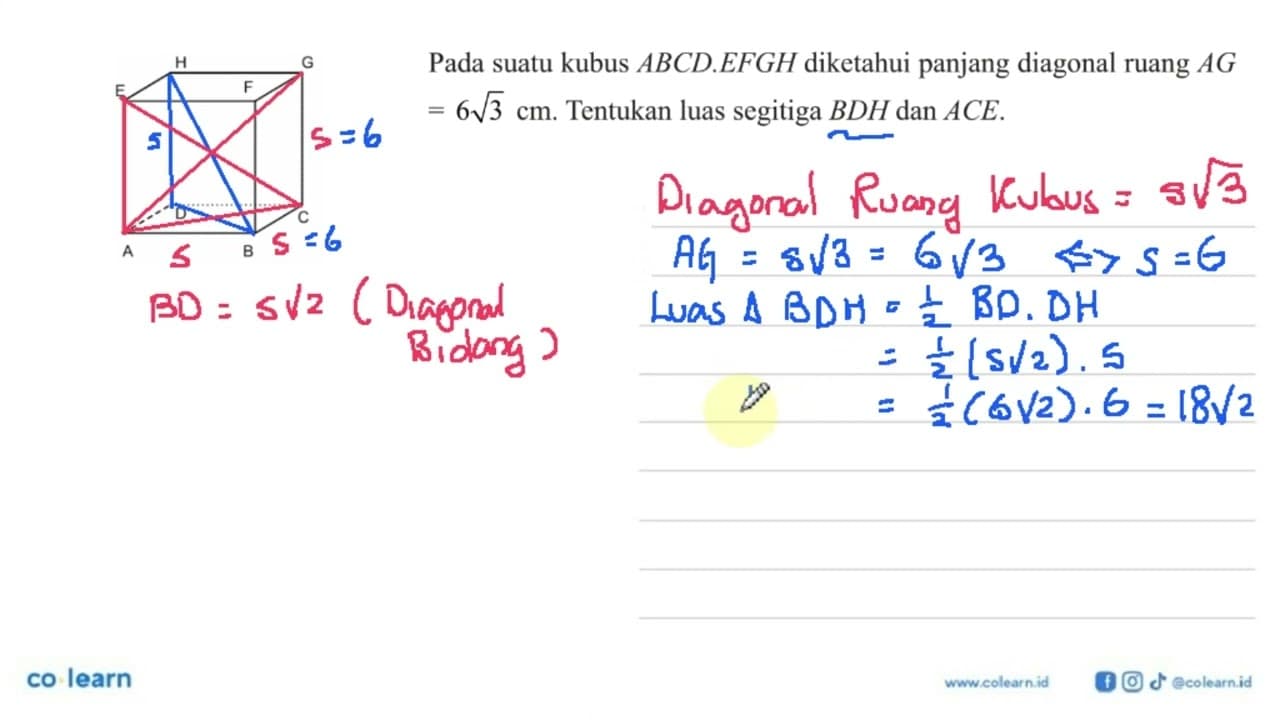 Pada suatu kubus ABCD.EFGH diketahui panjang diagonal ruang AG
= 6√3 cm. Tentukan luas segitiga BDH dan ACE.
H
G
E
F
s
s = 6
D
C
A
s
B
s = 6
BD = s√2 (Diagonal
Bidang)
Diagonal Ruang Kubus = s√3
AG = s√3 = 6√3 <=> s = 6
Luas Δ BDH = 1/2 BD. DH
= 1/2 (s√2) . s
= 1/2 (6√2) . 6 = 18√2
co learn
www.colearn.id
@colearn.id